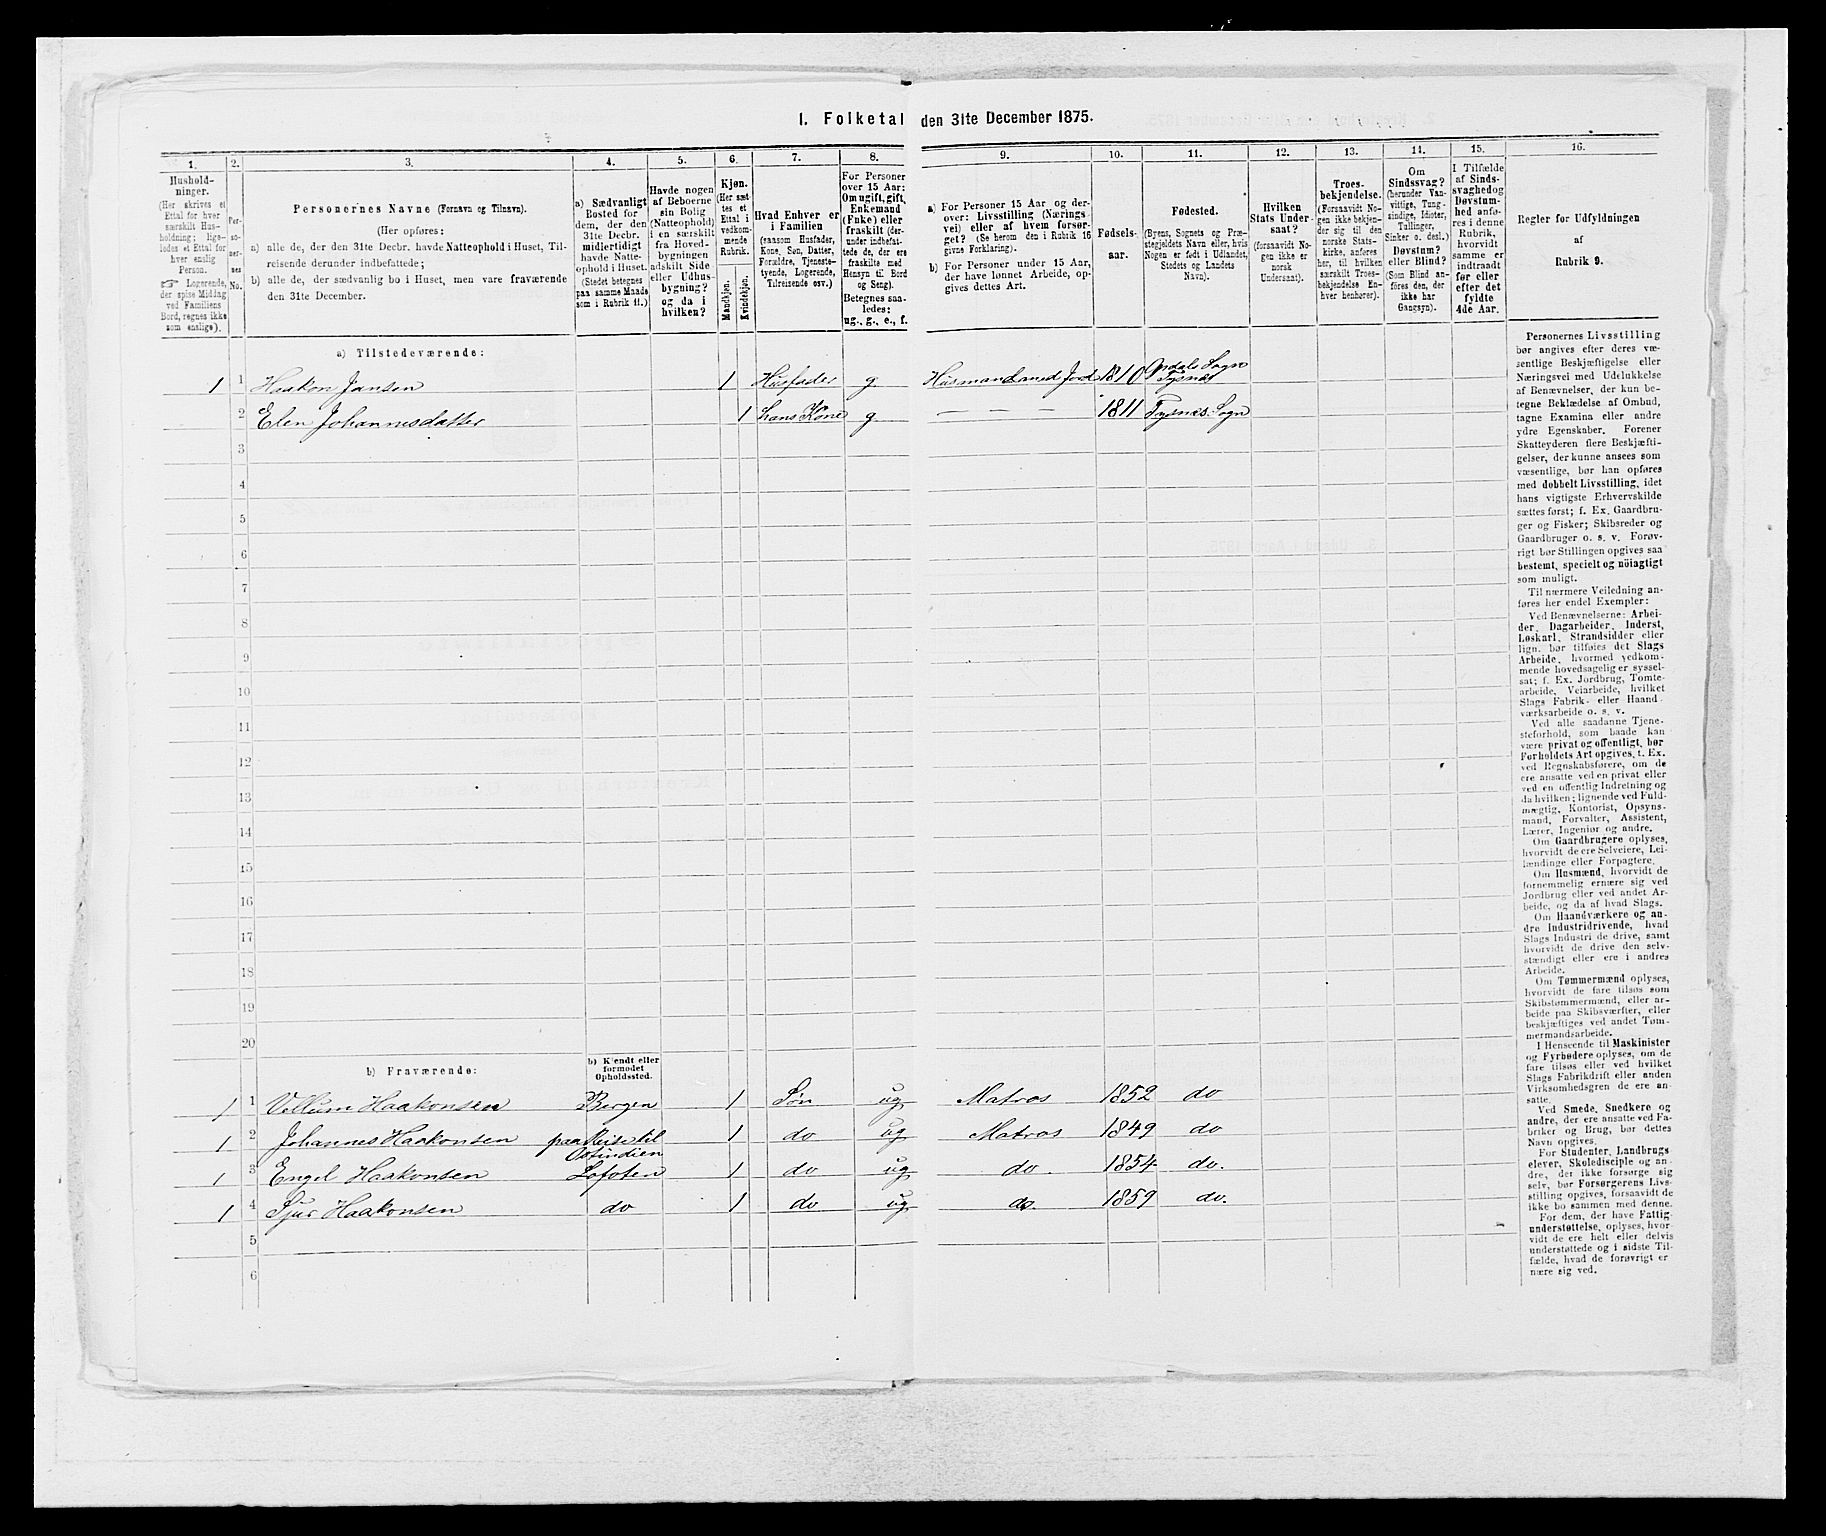 I. Folketal den 31te December 1875.
1. 2. 3. 4. 5. 6. 7. 8. 9. 10. 11. 12. 13. 14. 15. 16.
Hushold-
ninger.
(Her skrives et
Ettal for hver
særskilt Hus-
holdning; lige-
ledes et Ettal for
hver enslig
Person.
☞ Logerende,
der spise Middag
ved Familiens
Bord, regnes ikke
som enslige).
Per-
so-
ner-
nes
No.
Personernes Navne (Fornavn og Tilnavn).
(Her opføres:
a) alle de, der den 31te Decbr. havde Natteophold i Huset, Til-
reisende derunder indbefattede;
b) alle de, der sædvanlig bo i Huset, men vare fraværende
den 31te December.
a) Sædvanligt
Bosted for
dem, der den
31te Decbr.
midlertidigt
havde Natte-
ophold i Huset.
(Stedet betegnes
paa samme Maade
som i Rubrik 11.)
Havde nogen
af Beboerne
sin Bolig
(Natteophold)
i en særskilt
fra Hoved-
bygningen
adskilt Side
eller Udhus-
bygning?
og da i
hvilken?
Kjøn.
(Her sæt-
tes et
Ettal i
vedkom-
mende
Rubrik.
Mandkjøn.
Kvindekjøn.
Hvad Enhver er
i Familien
(saasom Husfader,
Kone, Søn, Datter,
Forældre, Tjeneste-
tyende, Logerende,
Tilreisende osv.)
For Personer
over 15 Aar:
Om ugift, gift,
Enkemand
(Enke) eller
fraskilt (der-
under indbefat-
tede de, der ere
fraskilte med
Hensyn til Bord
og Seng).
Betegnes saa-
ledes:
ug., g., e., f.
a) For Personer 15 Aar og der-
over: Livsstilling (Nærings-
vei) eller af hvem forsør-
get? (Se herom den i Rubrik 16
givne Forklaring).
b) For Personer under 15 Aar,
der have lønnet Arbeide, op-
gives dettes Art.
Fødsels-
aar.
Fødested.
(Byens, Sognets og Præ-
stegjeldets Navn eller, hvis
Nogen er født i Udlandet,
Stedets og Landets
Navn).
Hvilken
Stats Under-
saat?
(forsaavidt No-
gen ikke er
norsk
Undersaat).
Troes-
bekjendelse.
(Forsaavidt No-
gen ikke bekjen-
der sig til den
norske Stats-
kirke, anføres
her, til hvilken
særskilt Troes-
bekjendelse En-
hver henhører).
Om
Sindssvag?
(herunder Van-
vittige, Tung-
sindige, Idioter,
Tullinger,
Sinker o. desl.)
Døvstum?
eller Blind?
(Som Blind an-
føres den, der
ikke har
Gangsyn).
I Tilfælde
af Sinds-
svaghed og
Døvstum-
hed anfø-
res i denne
Rubrik,
hvorvidt
samme er
indtraadt
før eller
efter det
fyldte
4de Aar.
Regler for Udfyldningen
af
Rubrik 9.
a) Tilstedeværende:
1 1 Haakon Jansen 1 Husfader g. Husmand med Jord 1810 Opdals Sogn Tysnes
2 Elen Johannesdatter 1 hans Kone g — — — 1811 Tysnes Sogn
3
4
5
6
7
8
9
10
11
12
13
14
15
16
17
18
19
20
b) Fraværende:
b) Kjendt eller
formodet
Opholdssted.
1 1 Vellum Haakonsen Bergen 1 Søn ug Matros 1852 do
1 2 Johannes Haakonsen paa Reise til Ostindien 1 do ug Matros 1849 do
1 3 Engel Haakonsen Lofoten 1 do ug do. 1854 do.
1 4 Sjur Haakonsen do 1 do ug do. 1859 do.
5
6
Personernes Livsstilling
bør angives efter deres væ-
sentlige Beskjæftigelse eller
Næringsvei med Udelukkelse
af Benævnelser, der kun be-
tegne Beklædelse af Ombud,
tagne Examina eller andre
ydre Egenskaber. Forener
Skatteyderen flere Beskjæfti-
gelser, der kunne ansees som
væsentlige, bør han opføres
med dobbelt Livsstilling, idet
hans vigtigste Erhvervskilde
sættes først; f. Ex. Gaardbru-
ger og Fisker; Skibsreder og
Gaardbruger o. s. v. Forøv-
rigt bør Stillingen opgives saa
bestemt, specielt og nöiagtigt
som muligt.
Til nærmere Veiledning an-
føres her endel Exempler:
Ved Benævnelserne: Arbei-
der, Dagarbeider, Inderst,
Løskarl, Strandsidder eller
lign. bør tilføies det Slags
Arbeide, hvormed vedkom-
mende hovedsagelig er syssel-
sat; f. Ex. Jordbrug, Tomte-
arbeide, Veiarbeide, hvilket
Slags Fabrik- eller Haand-
værksarbeide o. s. v.
Ved alle saadanne Tjene-
steforhold, som baade kan
være privat og offentligt, bør
Forholdets Art opgives, t. Ex.
ved Regnskabsførere, om de
ere ansatte ved en privat eller
ved en offentlig Indretning og
da hvilken; lignende ved Fuld-
mægtig, Kontorist, Opsyns-
mand, Forvalter, Assistent,
Lærer, Ingeniør og andre.
Om Gaardbrugere oplyses,
hvorvidt de ere Selveiere, Lei-
lændinge eller Forpagtere.
Om Husmænd, hvorvidt de
fornemmelig ernære sig ved
Jordbrug eller ved andet Ar-
beide, og da af hvad Slags.
Om Haandværkere og an-
dre Industridrivende, hvad
Slags Industri de drive, samt
hvorvidt de drive den selv-
stændigt eller ere i andres
Arbeide.
Om Tømmermænd oplyses,
hvorvidt de fare tilsøs som
Skibstømmermænd, eller ar-
beide paa Skibsværfter, eller
beskjæftiges ved andet Tøm-
mermandsarbeide.
I Henseende til Maskinister
og Fyrbødere oplyses, om de
fare tilsøs eller ved hvilket
Slags Fabrikdrift eller anden
Virksomhedsgren de ere an-
satte.
Ved Smede, Snedkere og
andre, der ere ansatte ved Fa-
briker og Brug, bør dettes
Navn opgives.
For Studenter, Landbrugs-
elever, Skoledisciple og an-
dre, der ikke forsørge sig
selv, bør Forsørgerens Livs-
stilling opgives, forsaavidt de
ikke bo sammen med denne.
For dem, der have Fattig-
understøttelse, oplyses, hvor-
vidt de ere helt eller delvis
understøttede og i sidste Til-
fælde, hvad de forøvrigt er
nære sig ved.